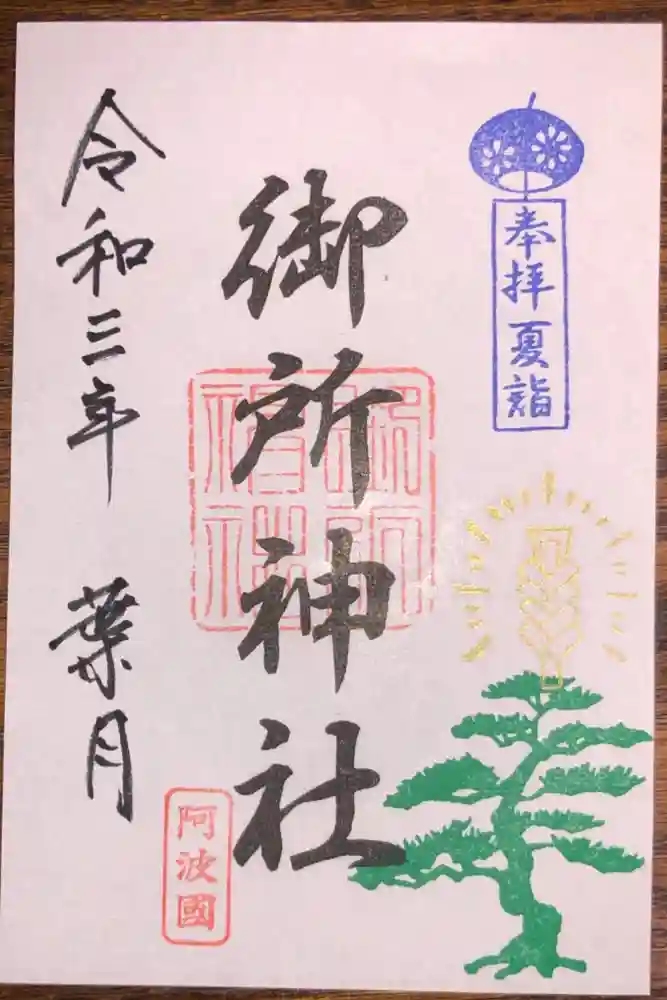 奉拝夏詣
御所神社
御所神社
阿波國
令和三年 葉月